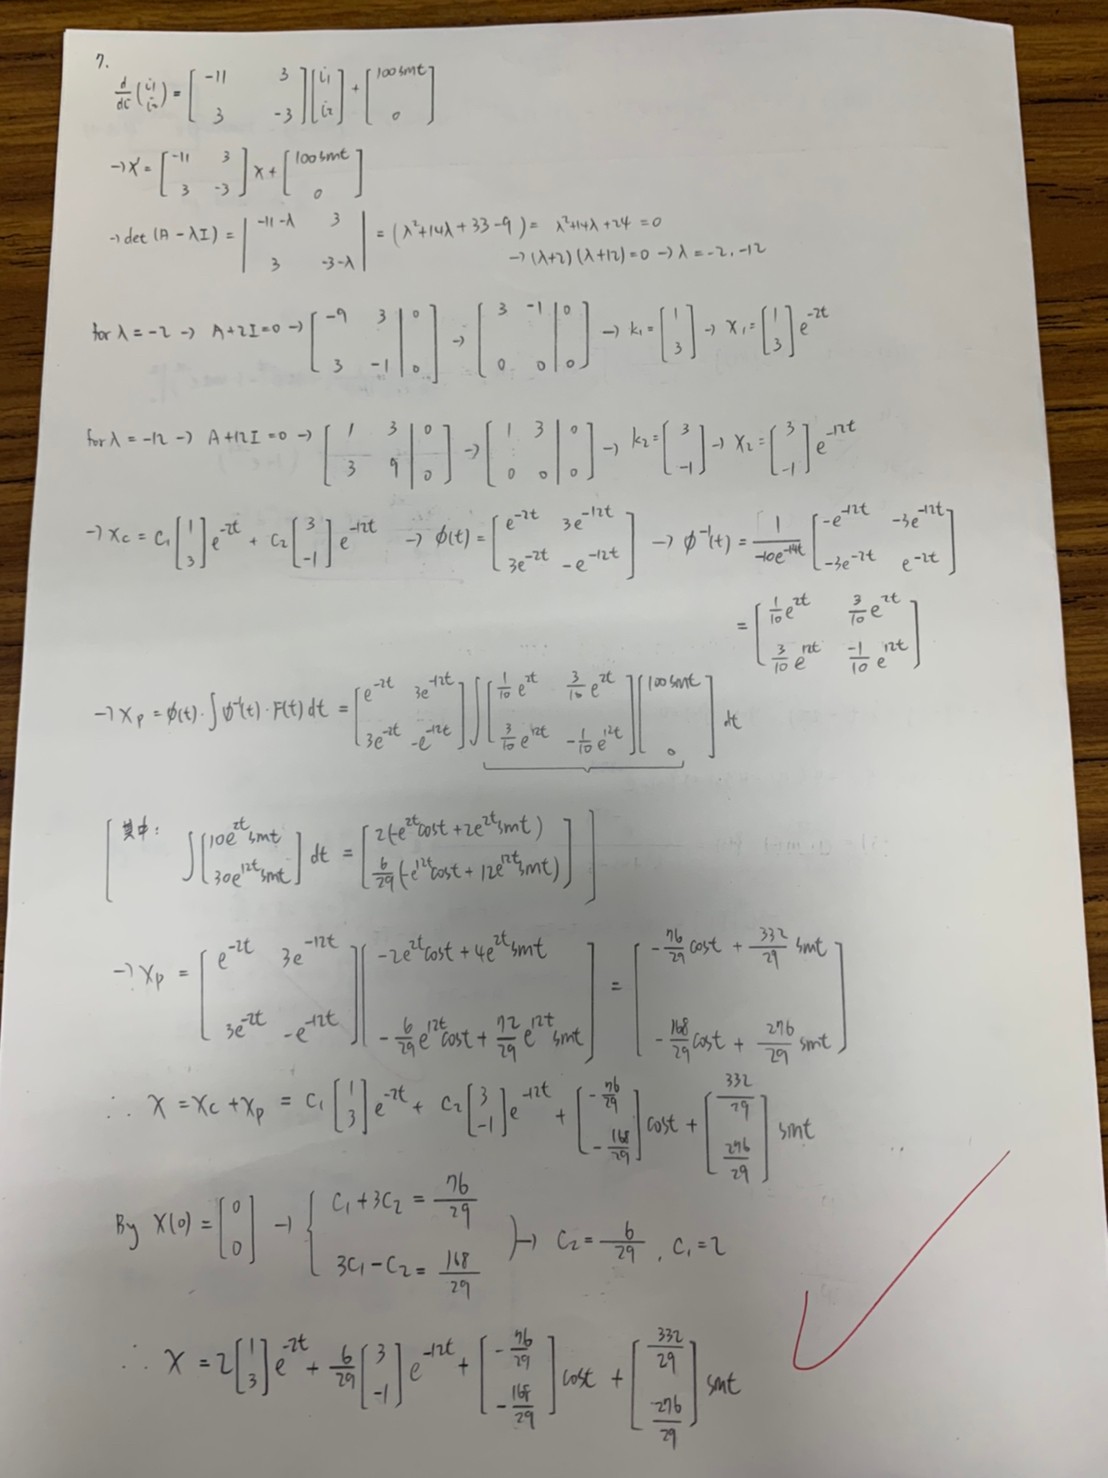 7.
d/dt (i₁ i₂) = [-11 3; 3 -3][i₁; i₂] + [100sint; 0]
→ X' = [-11 3; 3 -3] X + [100sint; 0]
→ det (A-λI) = |-11-λ 3; 3 -3-λ| = (λ²+14λ+33-9) = λ²+14λ+24 = 0
→ (λ+2)(λ+12)=0 → λ = -2, -12
for λ = -2 → A+2I=0 → [-9 3 | 0; 3 -1 | 0] → [3 -1 | 0; 0 0 | 0] → k₁ = [1; 3] → X₁ = [1; 3] e^{-2t}
for λ = -12 → A+12I=0 → [1 3 | 0; 3 9 | 0] → [1 3 | 0; 0 0 | 0] → k₂ = [3; -1] → X₂ = [3; -1] e^{-12t}
→ Xc = C₁ [1; 3] e^{-2t} + C₂ [3; -1] e^{-12t} → φ(t) = [e^{-2t} 3e^{-12t}; 3e^{-2t} -e^{-12t}] → φ⁻¹(t) = 1/(-10e^{-14t}) [-e^{-12t} -3e^{-12t}; -3e^{-2t} e^{-2t}]
= [1/10 e^{2t} 3/10 e^{2t}; 3/10 e^{12t} -1/10 e^{12t}]
→ Xp = φ(t)·∫φ⁻¹(t)·F(t)dt = [e^{-2t} 3e^{-12t}; 3e^{-2t} -e^{-12t}] ∫ [1/10 e^{2t} 3/10 e^{2t}; 3/10 e^{12t} -1/10 e^{12t}] [100sint; 0] dt
[其中: ∫ [10e^{2t}sint; 30e^{12t}sint] dt = [2(-e^{2t}cost+2e^{2t}sint); 6/29(-e^{12t}cost+12e^{12t}sint)]]
→ Xp = [e^{-2t} 3e^{-12t}; 3e^{-2t} -e^{-12t}] [-2e^{2t}cost+4e^{2t}sint; -6/29 e^{12t}cost+72/29 e^{12t}sint] = [-76/29 cost + 332/29 sint; -168/29 cost + 276/29 sint]
∴ X = Xc+Xp = C₁ [1; 3] e^{-2t} + C₂ [3; -1] e^{-12t} + [-76/29; -168/29] cost + [332/29; 276/29] sint
By X(0) = [0; 0] → { C₁+3C₂ = 76/29; 3C₁-C₂ = 168/29 } → C₂ = 6/29, C₁=2
∴ X = 2 [1; 3] e^{-2t} + 6/29 [3; -1] e^{-12t} + [-76/29; -168/29] cost + [332/29; 276/29] sint